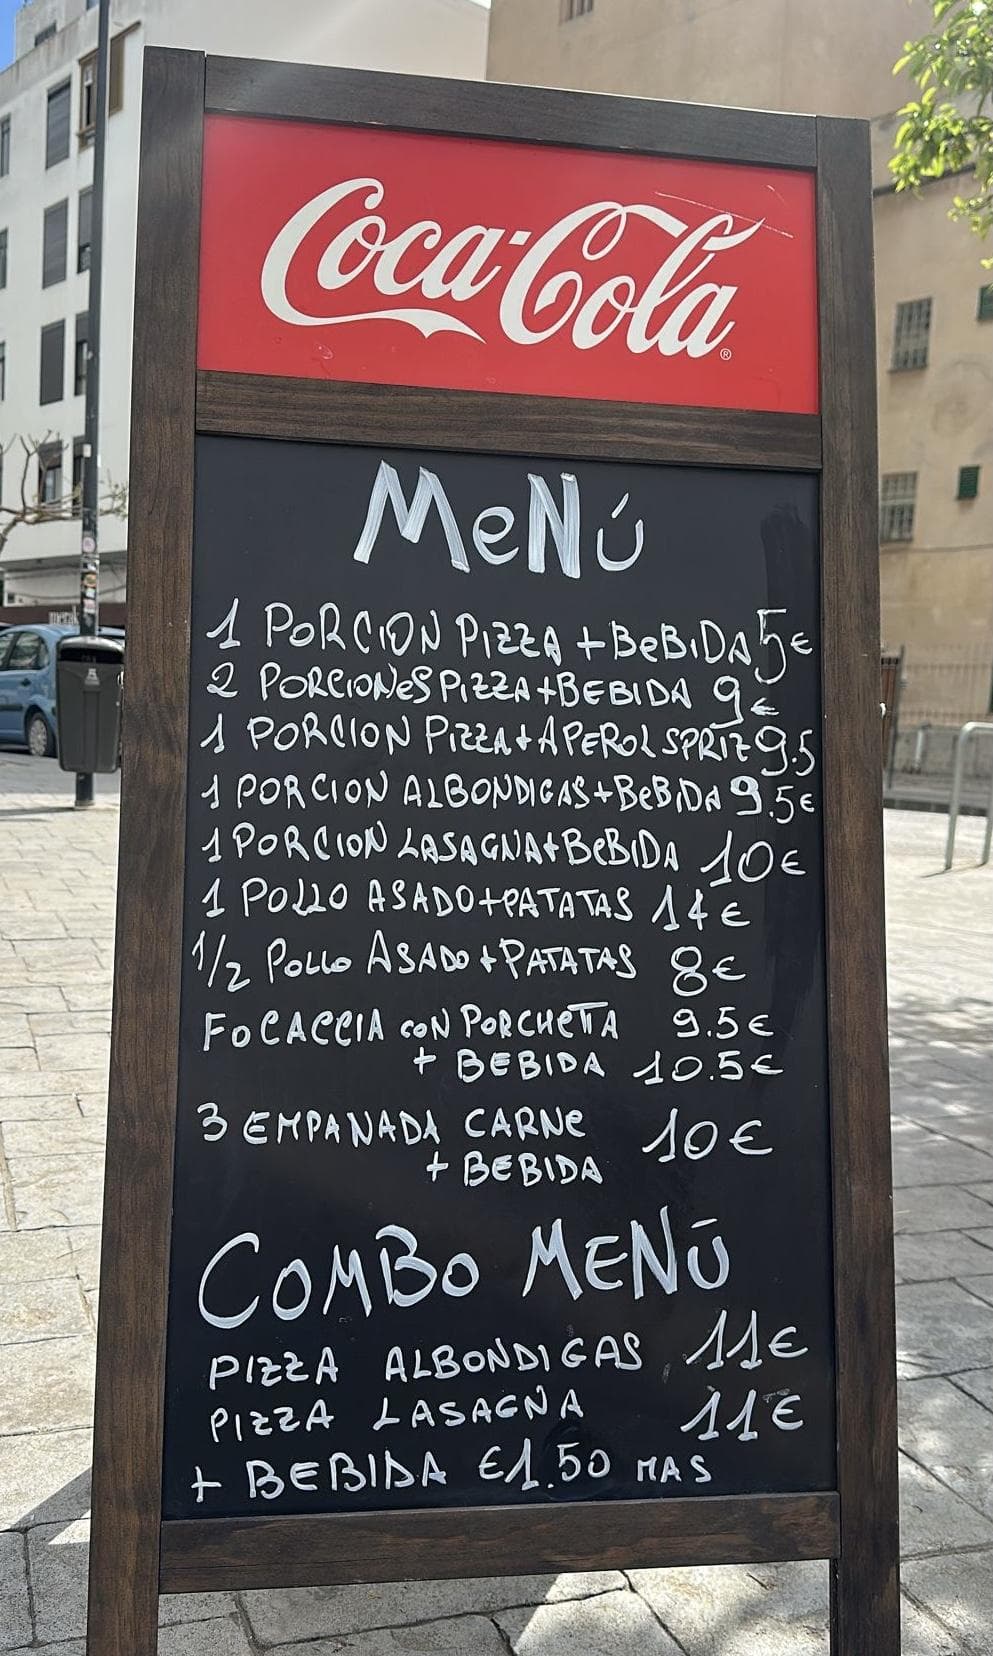 Coca-Cola
®
MeNú
1 PORCION PIZZA + BeBiDA 5€
2 PORCIONeS PIZZA + BEBIDA 9€
1 PORCION PIZZA + APEROL SPRIZ 9.5
1 PORCION ALBONDIGAS + BeBIDA 9.5€
1 PORCION LASAGNA + BeBIDA 10€
1 POLLO ASADO + PATATAS 14€
1/2 POLLO ASADO + PATATAS 8€
FOCACCIA CON PORCHETTA 9.5€
+ BEBIDA 10.5€
3 EMPANADA CARNe 10€
+ BEBIDA
COMBO MENŪ
PIZZA ALBONDIGAS 11€
PIZZA LASAGNA 11€
+ BEBIDA €1.50 MAS